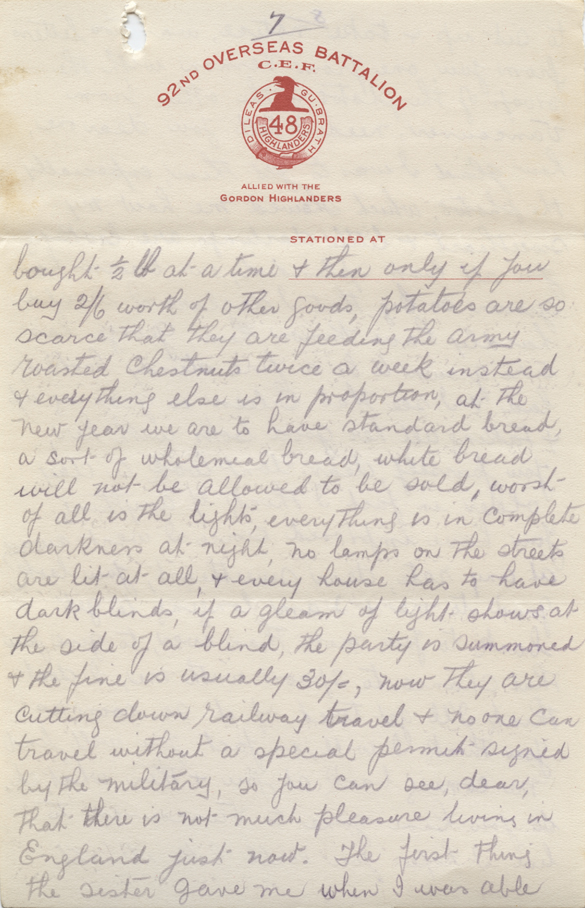 7 8
92ND OVERSEAS BATTALION
C.E.F.
DILEAS GU BRATH
48
HIGHLANDERS
ALLIED WITH THE
GORDON HIGHLANDERS
STATIONED AT
bought ½ lb at a time & then only if you
buy 2/6 worth of other goods, potatoes are so
scarce that they are feeding the army
roasted Chestnuts twice a week instead
& everything else is in proportion, at the
New Year we are to have standard bread,
a sort of wholemeal bread, white bread
will not be allowed to be sold, worst
of all is the lights, everything is in complete
darkness at night, no lamps on the streets
are lit at all, & every house has to have
dark blinds, if a gleam of light shows at
the side of a blind, the party is summoned
& the fine is usually 30/=, now they are
cutting down railway travel & no one can
travel without a special permit signed
by the military, so you can see, dear,
that there is not much pleasure living in
England just now. The first thing
the sister gave me when I was able